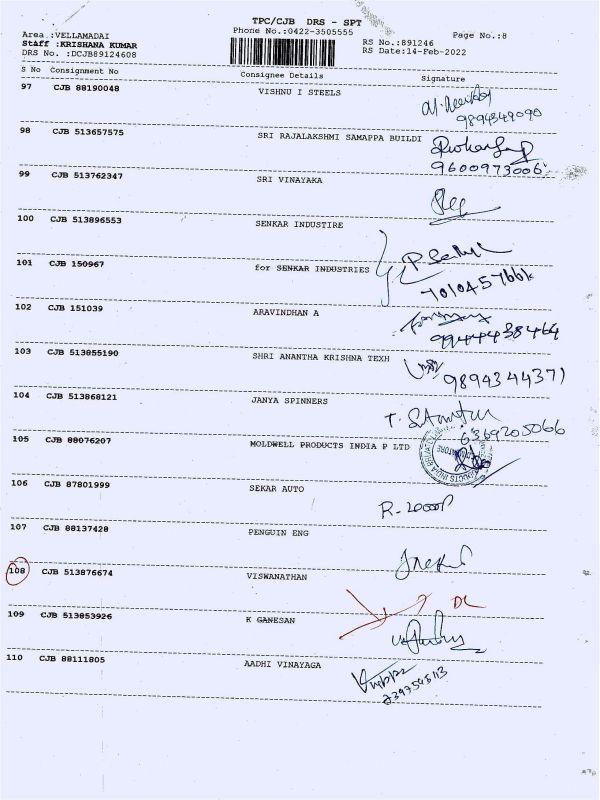 TPC/CJB DRS - SPT
Area :VELLAMADAI Phone No.:0422-3505555 Page No.:8
Staff :KRISHANA KUMAR RS No.:891246
DRS No. :DCJB89124608 RS Date:14-Feb-2022
S No Consignment No Consignee Details Signature
97 CJB 88190048 VISHNU I STEELS
9894349090
98 CJB 513657575 SRI RAJALAKSHMI SAMAPPA BUILDI
9600973006
99 CJB 513762347 SRI VINAYAKA
100 CJB 513896553 SENKAR INDUSTIRE
101 CJB 150967 for SENKAR INDUSTRIES
7010457661
102 CJB 151039 ARAVINDHAN A
103 CJB 513855190 SHRI ANANTHA KRISHNA TEXH
9894344371
104 CJB 513868121 JANYA SPINNERS
6369205066
105 CJB 88076207 MOLDWELL PRODUCTS INDIA P LTD
106 CJB 87801999 SEKAR AUTO
107 CJB 88137428 PENGUIN ENG
108 CJB 513876674 VISWANATHAN
DL
109 CJB 513853926 K GANESAN
110 CJB 88111805 AADHI VINAYAGA